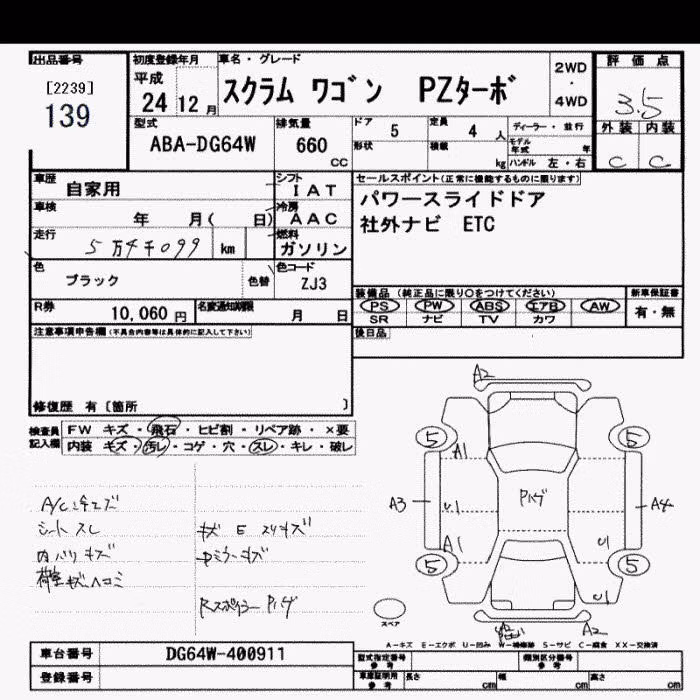 出品番号
[2239]
139
初度登録年月
平成
24 12 月
車名・グレード
スクラム ワゴン PZターボ
2WD
・
4WD
評価点
3.5
外装 内装
C C
型式
ABA-DG64W
排気量
660
CC
ドア 5
形状
定員 4 人
積載 kg
ディーラー・並行
モデル年式 年
ハンドル 左・右
車歴 自家用
シフト IAT
車検 年 月( 日)
冷房 AAC
走行 5万4千099 km
燃料 ガソリン
色 ブラック
色替
色コード ZJ3
R券 10,060 円
名変通知期限 月 日
セールスポイント(正常に機能するものに限ります)
パワースライドドア
社外ナビ ETC
装備品(純正品に限り○をつけてください)
PS PW ABS エアB AW
SR ナビ TV カワ
新車保証書
有・無
後日品
注意事項申告欄(不具合内容等は具体的に記入して下さい)
修復歴 有〔箇所 〕
検査員記入欄
FW キズ・飛石・ヒビ割・リペア跡・×要
内装 キズ・汚レ・コゲ・穴・スレ・キレ・破レ
A/C冷エズ
シートスレ
内バリキズ
荷室キズヘコミ
キズ E スリキズ
Dミラーキズ
Rスポイラー Pハゲ
A2
5 5
A1
A3 U1 Pハゲ A4
A1 U1
5 5
U1
A2
スペア
A－キズ E－エクボ U－凹み W－補修跡 S－サビ C－腐食 XX－交換済
車台番号 DG64W-400911
登録番号
型式指定番号
参考
類別区分番号
参考
車庫証明用
参考
長さ cm 幅 cm 高さ cm